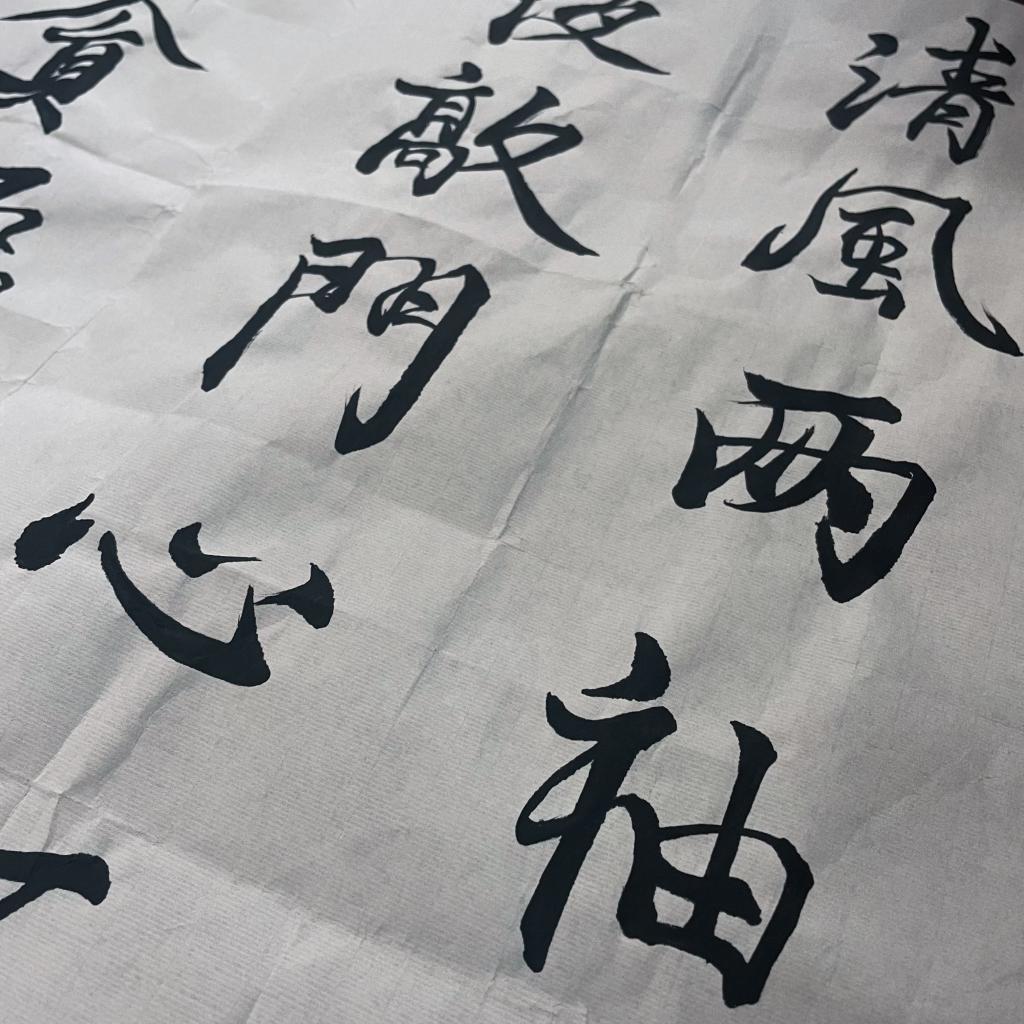 清風两袖
敲門心